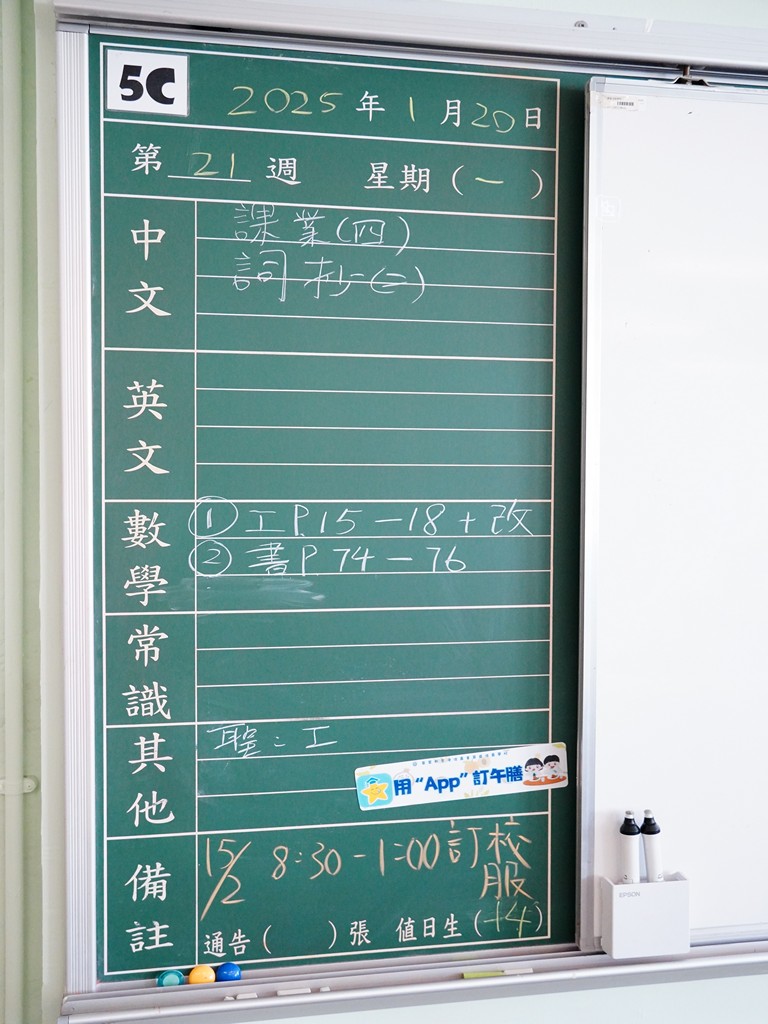 5C
2025年1月20日
第 21 週 星期(一)
中文
課業(四)
詞抄(二)
英文
數學
① 工P.15-18+改
② 書P 74-76
常識
其他
聖:工
用“App”訂午膳
備註
15/2 8:30-1:00訂校服
通告( )張 值日生(14)
EPSON